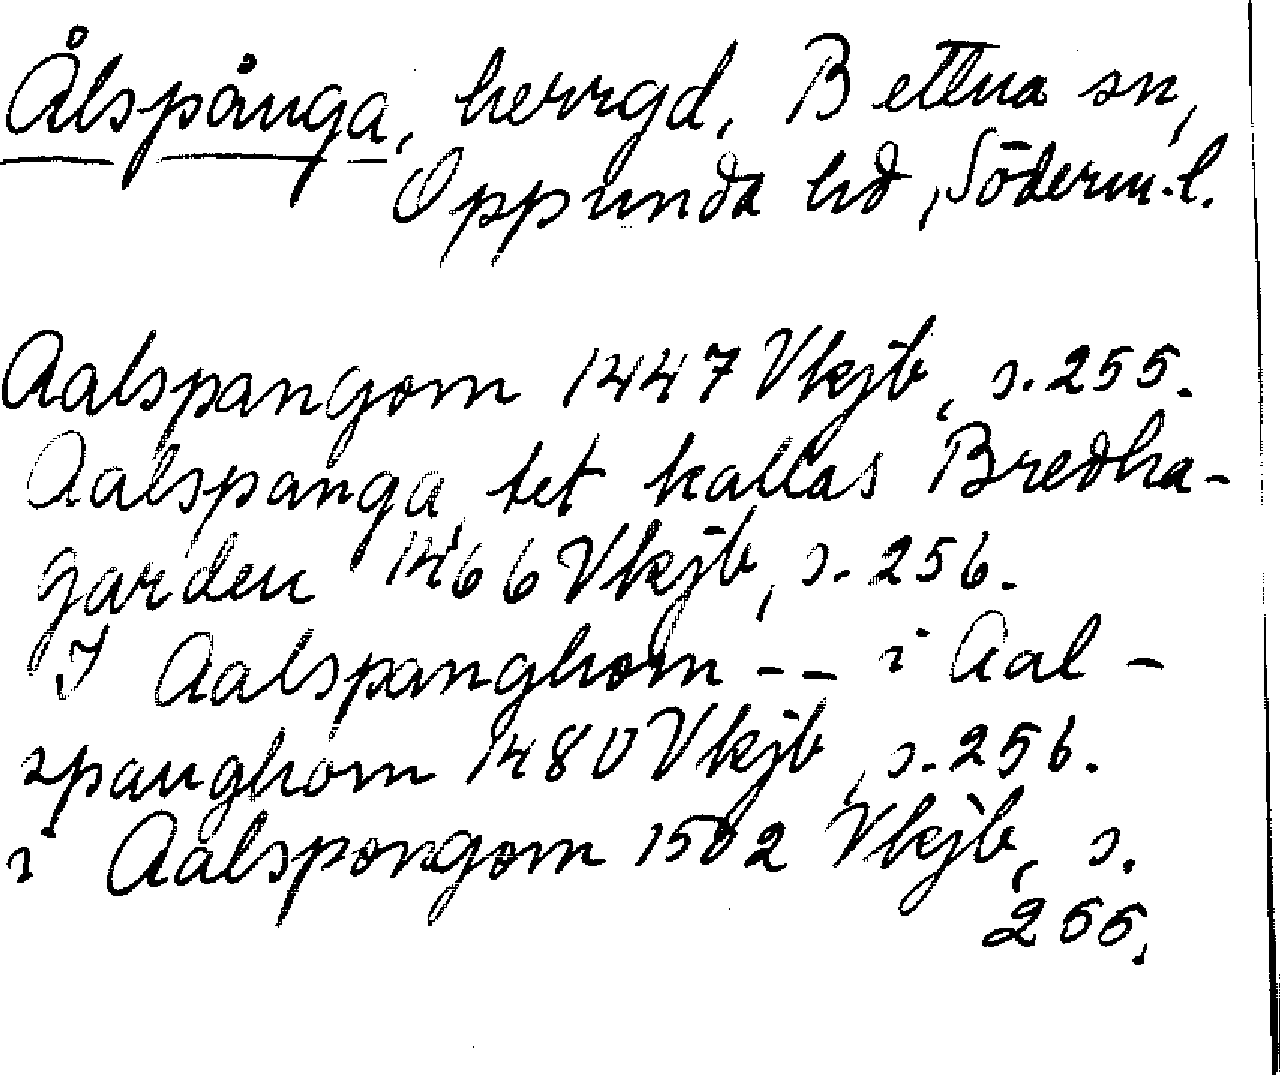 Ålspånga, herrgd, Bettna sn,
Oppunda hd, Söderm.l.
Aalspangom 1447 Vkjb, s. 255.
Aalspanga, tet kallas Bredha-
garden 1466 Vkjb, s. 256.
I Aalspanghom -- i Aal-
spanghom 1480 Vkjb, s. 256.
i Aalspongom 1502 Vkjb, s.
255.